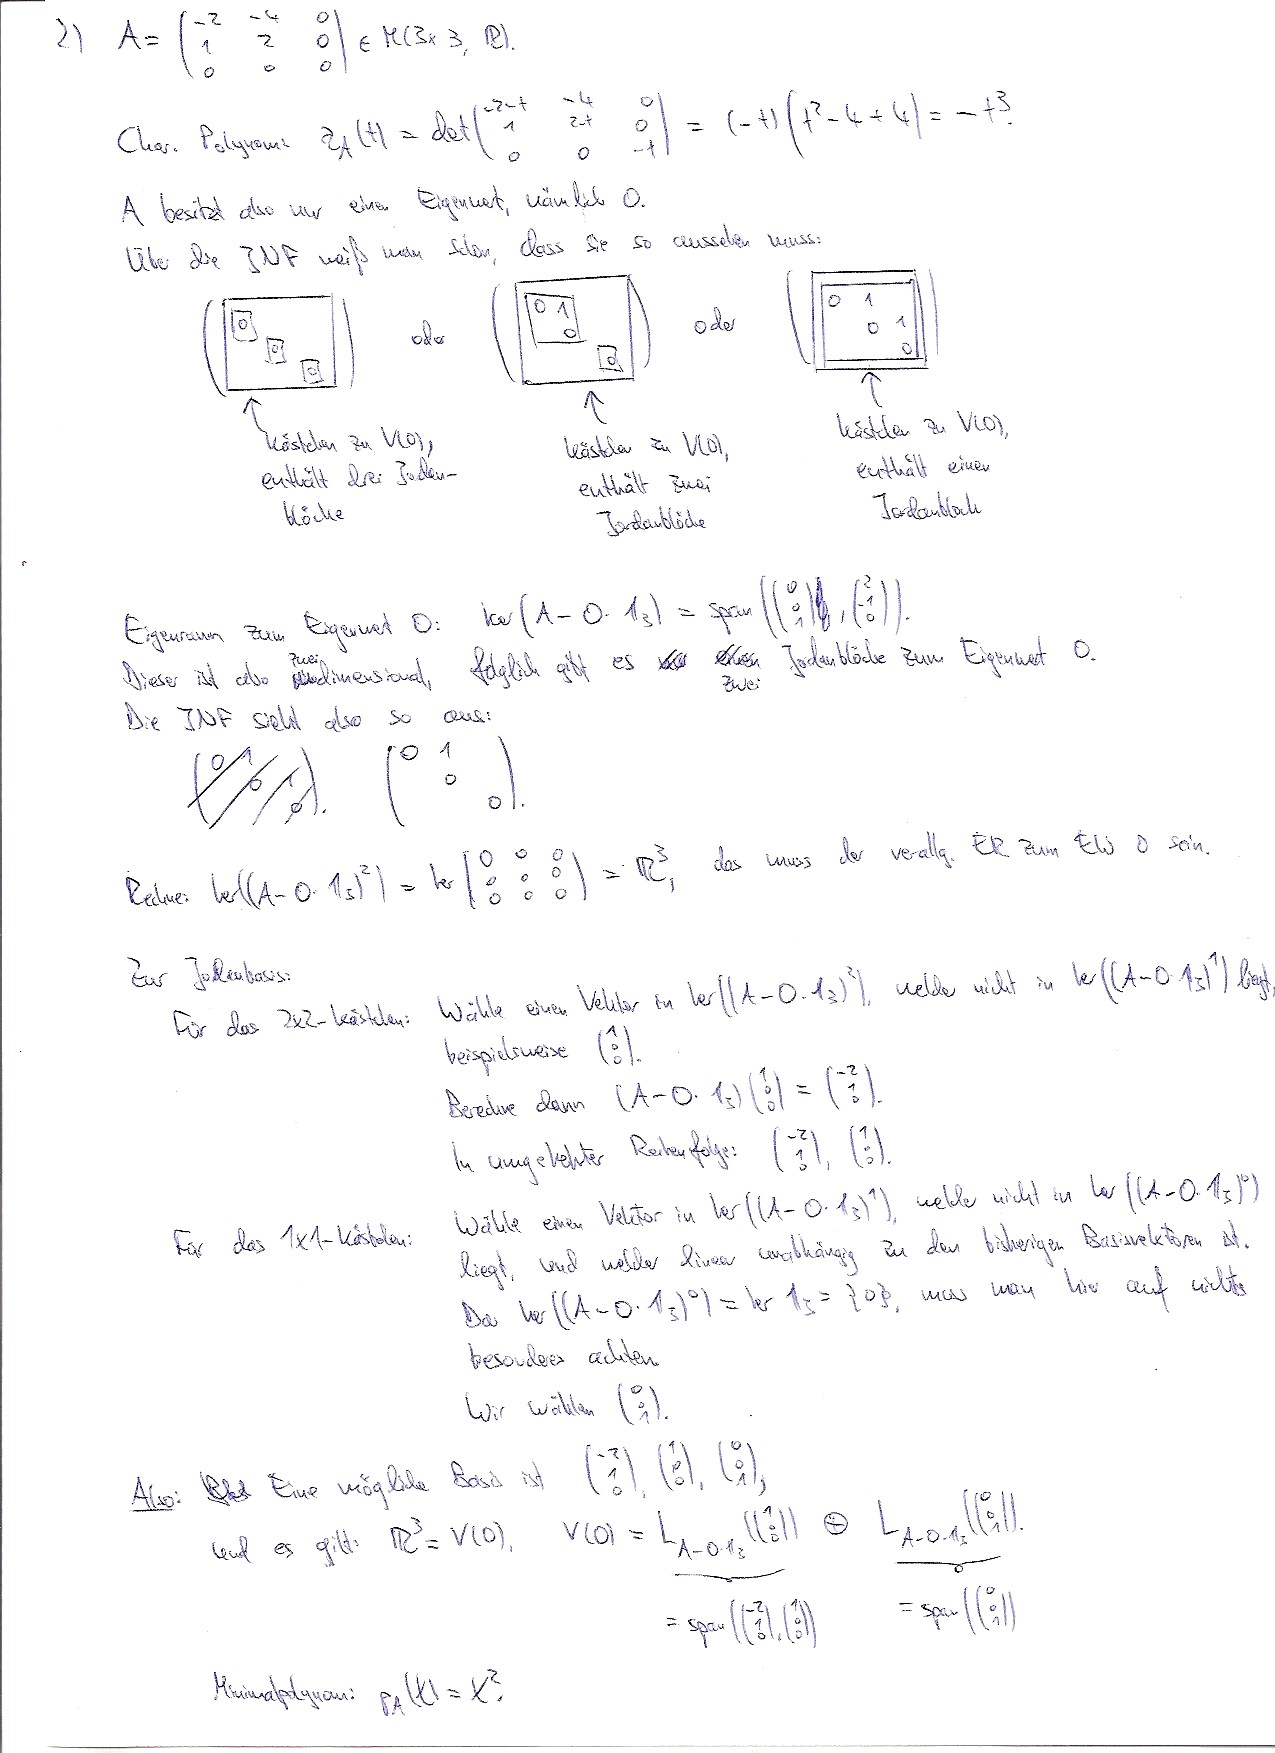 2) A = (-2 -4 0; 1 2 0; 0 0 0) ∈ M(3×3, ℝ).
Char. Polynom: χ_A(t) = det(-2-t -4 0; 1 2-t 0; 0 0 -t) = (-t)(t²-4+4) = -t³.
A besitzt also nur einen Eigenwert, nämlich 0.
Über die JNF weiß man schon, dass sie so aussehen muss:
(0 0 0) oder (0 1 0 0) oder (0 1 0 1 0)
Kästchen zu V(0), enthält drei Jordanblöcke
Kästchen zu V(0), enthält zwei Jordanblöcke
Kästchen zu V(0), enthält einen Jordanblock
Eigenraum zum Eigenwert 0: ker(A - 0·1₃) = span((0 0 1), (2 -1 0)).
Dieser ist also zweidimensional, folglich gibt es zwei Jordanblöcke zum Eigenwert 0.
Die JNF sieht also so aus:
(0 1 0 1 0). (0 1 0 0).
Rechne: ker((A - 0·1₃)²) = ker(0 0 0; 0 0 0; 0 0 0) = ℝ³, das muss der verallg. ER zum EW 0 sein.
Zur Jordanbasis:
Für das 2x2-Kästchen: Wähle einen Vektor in ker((A - 0·1₃)²), welcher nicht in ker((A - 0·1₃)¹) liegt,
beispielsweise (1 0 0).
Berechne dann (A - 0·1₃)(1 0 0) = (-2 1 0).
In umgekehrter Reihenfolge: (-2 1 0), (1 0 0).
Für das 1x1-Kästchen: Wähle einen Vektor in ker((A - 0·1₃)¹), welcher nicht in ker((A - 0·1₃)⁰)
liegt, und welcher linear unabhängig zu den bisherigen Basisvektoren ist.
Da ker((A - 0·1₃)⁰) = ker 1₃ = {0}, muss man hier auf nichts
besonderes achten.
Wir wählen (0 0 1).
Also: Eine mögliche Basis ist (-2 1 0), (1 0 0), (0 0 1),
und es gilt: ℝ³ = V(0), V(0) = L_{A-0·1₃}((1 0 0)) ⊕ L_{A-0·1₃}((0 0 1)).
= span((-2 1 0), (1 0 0)) = span((0 0 1))
Minimalpolynom: p_A(X) = X².